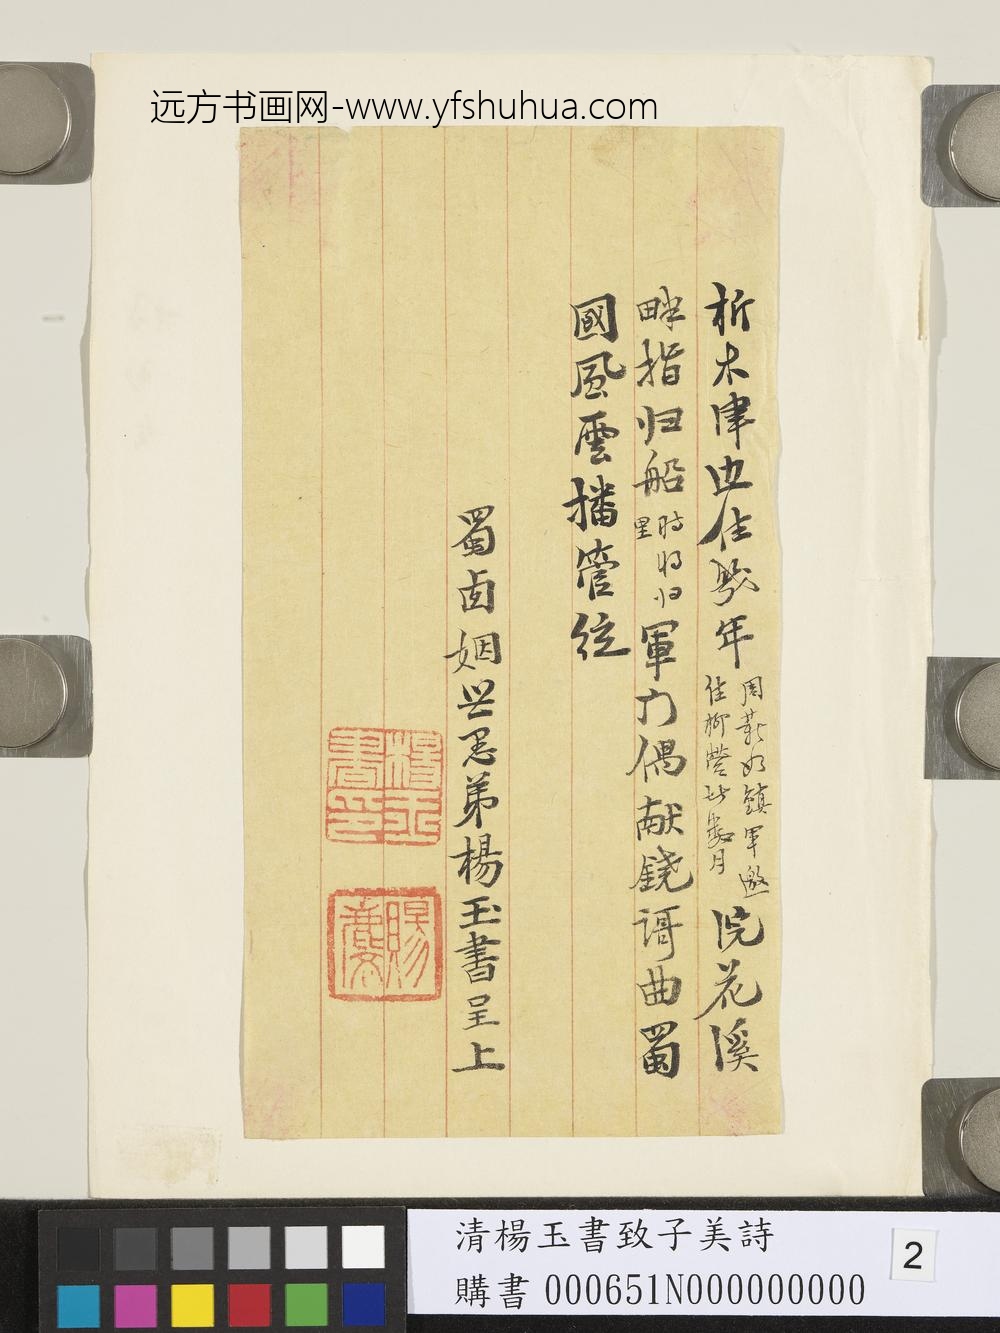 远方书画网-www.yfshuhua.com
析木津边住几年 周薪如镇军邀 住柳营此数月 浣花溪
畔指归船 时将归 里 軍门偶献鐃謌曲蜀
國風雲播管絃
蜀卤姻世愚弟楊玉書呈上
楊玉書印
賜慶
清楊玉書致子美詩
購書 000651N000000000
2